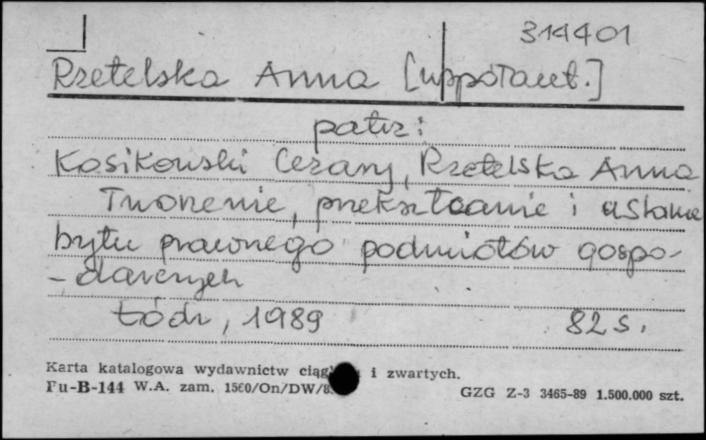 314401
Rzetelska Anna [współaut.]
patrz:
Kosikowski Cezary, Rzetelska Anna
Tworzenie, przekształcanie i ustanie
bytu prawnego podmiotów gospo-
-darczych
Łódź, 1989 82 s.
Karta katalogowa wydawnictw ciągł i zwartych.
Pu-B-144 W.A. zam. 1560/On/DW/8
GZG Z-3 3465-89 1.500.000 szt.